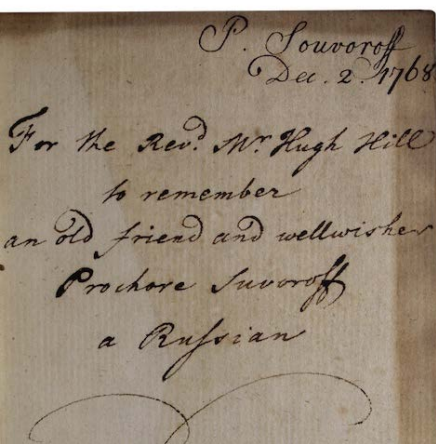 P. Souvoroff
Dec. 2. 1768
For the Revd. Mr. Hugh Hill
to remember
an old friend and wellwisher
Prohore Suvoroff
a Russian